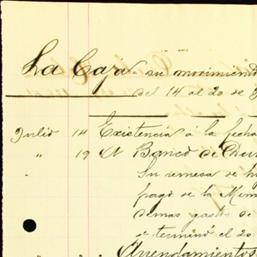 La Caja su movimiento
del 14 al 20 de
Julio 14 Existencia á la fecha
" 19 A Banco de
Su remesa de
pago de la
demas gastos de
se terminó el 20
Arrendamientos